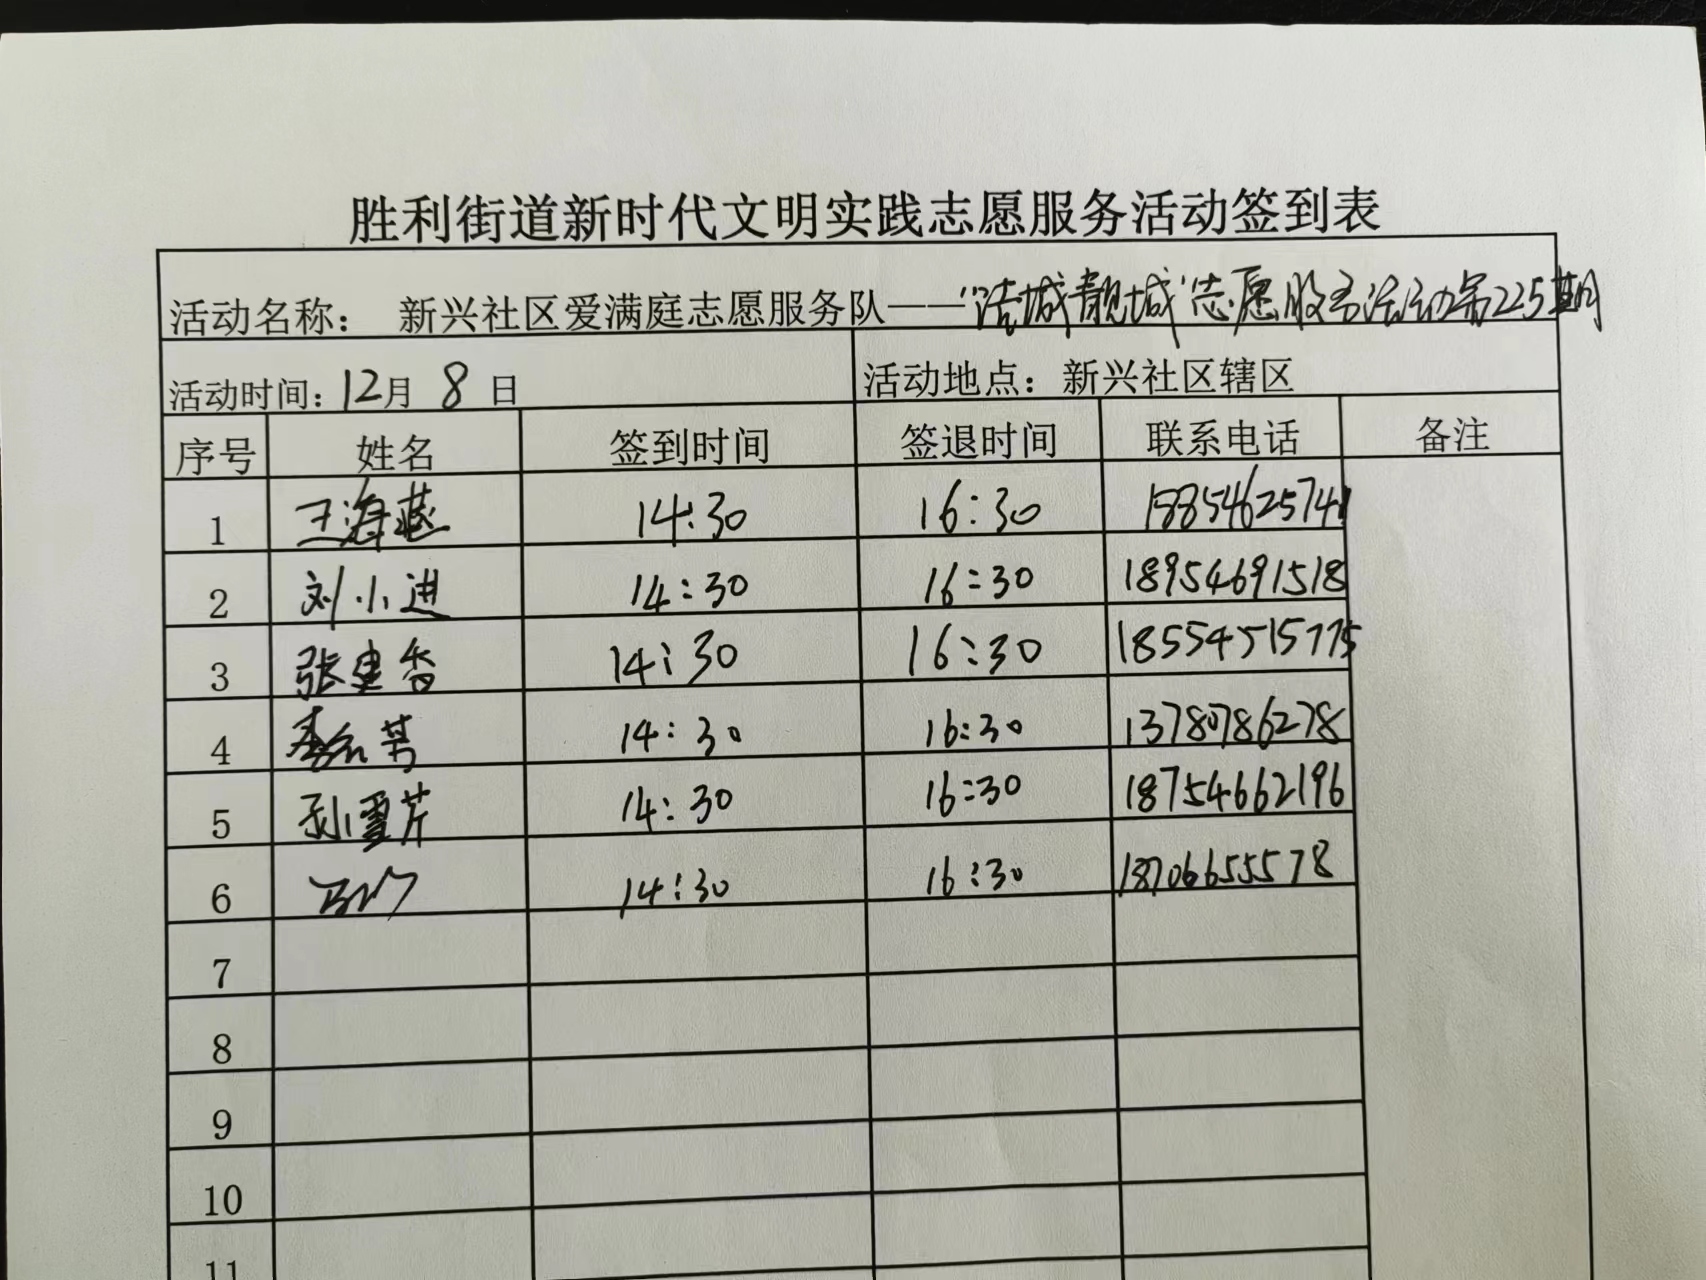 胜利街道新时代文明实践志愿服务活动签到表
活动名称： 新兴社区爱满庭志愿服务队——“洁城靓城”志愿服务活动第225期
活动时间：12月 8 日 活动地点：新兴社区辖区
序号 姓名 签到时间 签退时间 联系电话 备注
1 王海燕 14:30 16:30
2 刘小进 14:30 16:30 18954691518
3 张建香 14:30 16:30 18554515775
4 14:30 16:30 13780786278
5 孙雪芹 14:30 16:30 18754662196
6 14:30 16:30 18706655578
7
8
9
10
11